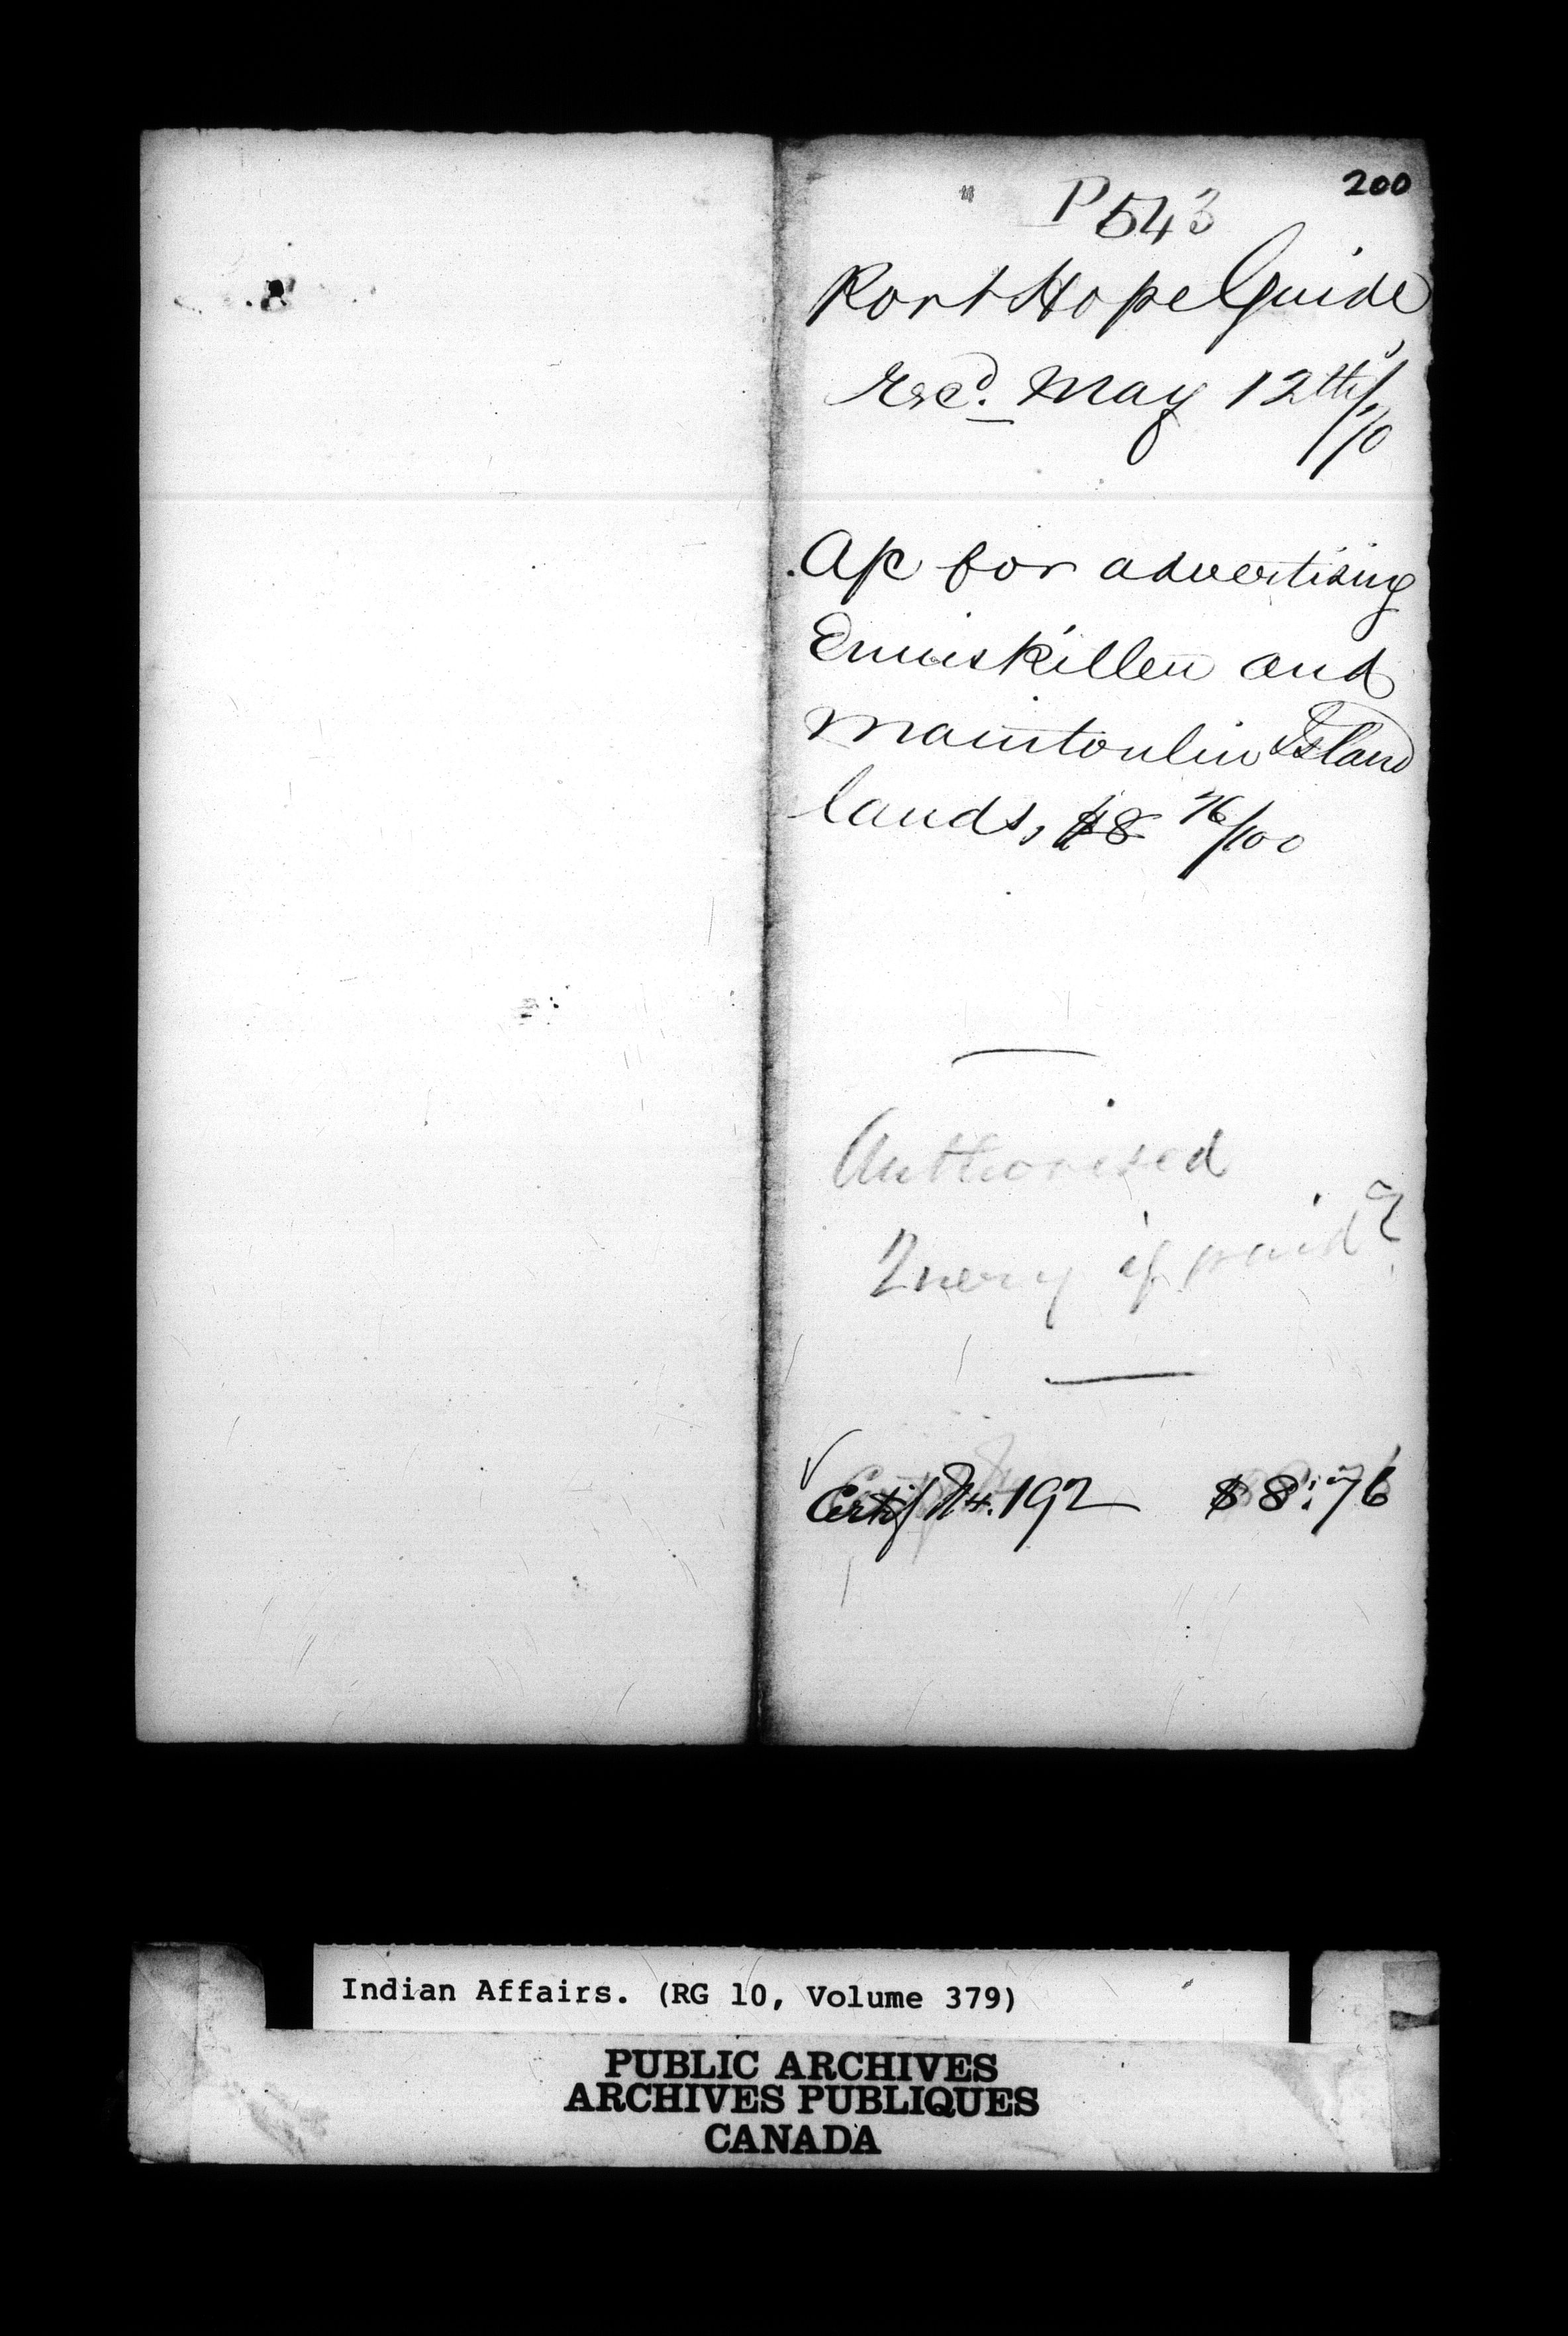 200
P543
Port Hope Guide
Recd. May 12th/70
A/c for advertising
Enniskillen and
Manitoulin Island
lands, $8 76/100
Authorised
Query if paid?
Certif No. 192 $8:76
Indian Affairs. (RG 10, Volume 379)
PUBLIC ARCHIVES
ARCHIVES PUBLIQUES
CANADA